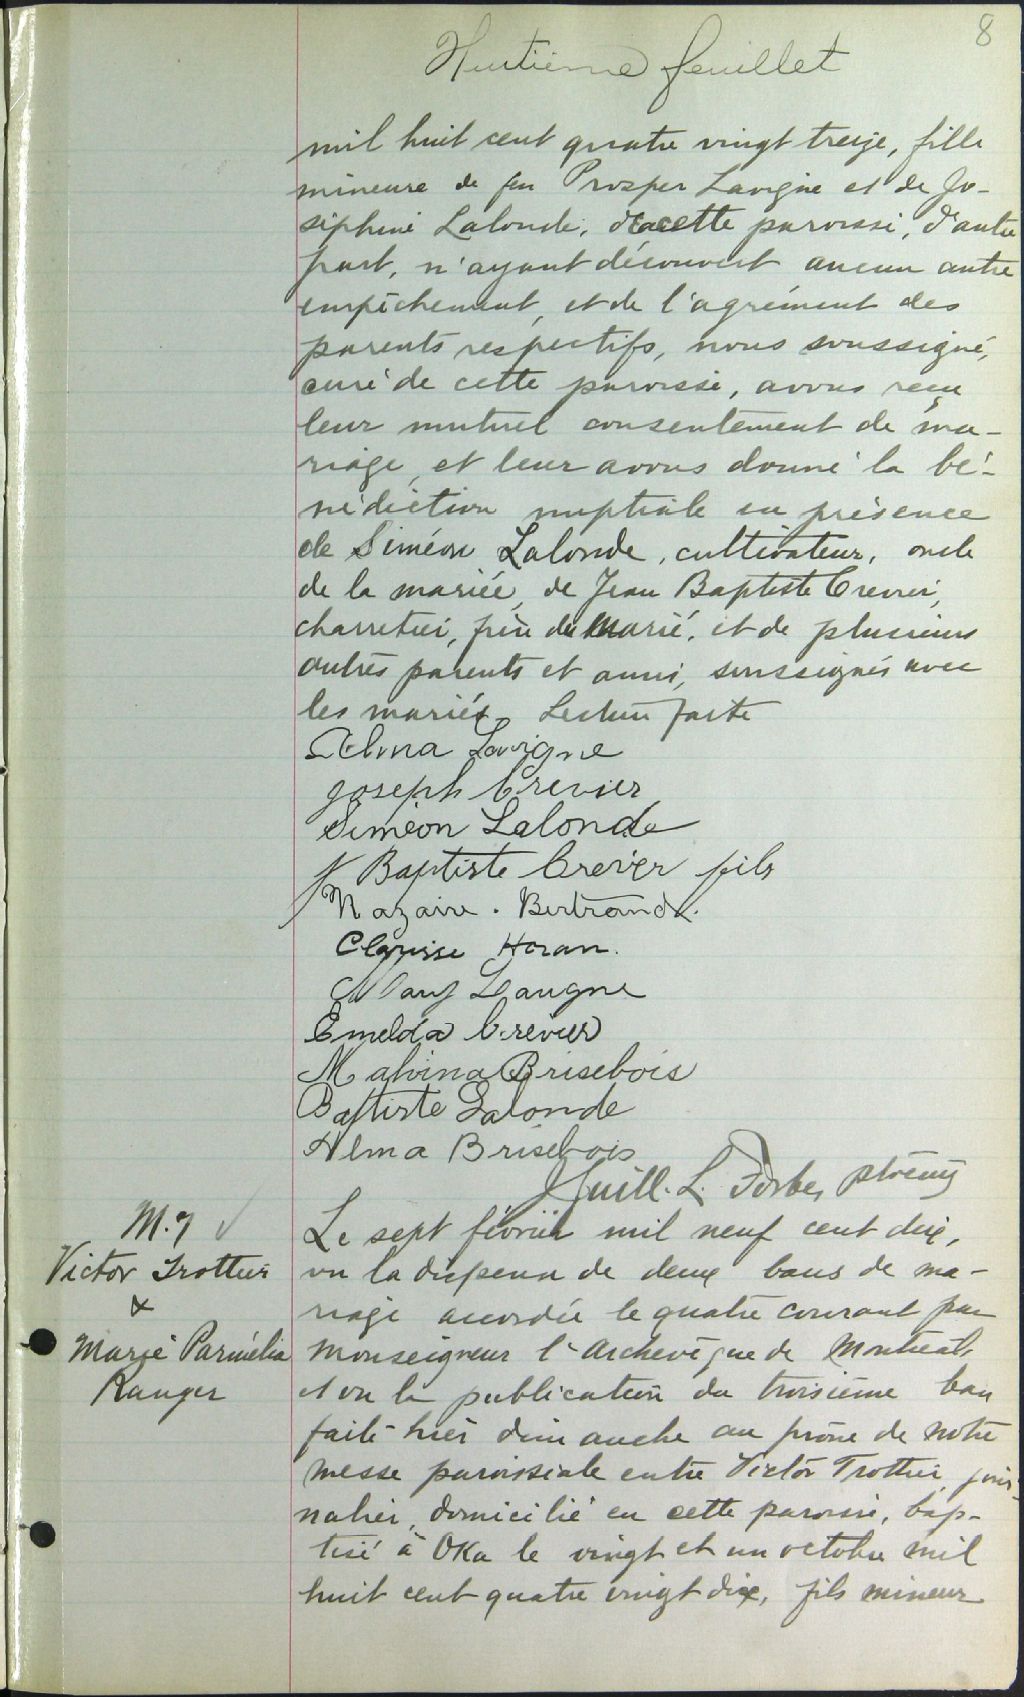 8
Huitième feuillet
mil huit cent quatre vingt treize, fille
mineure de feu Prosper Lavigne et de Jo-
séphine Lalonde, de cette paroisse, d'autre
part, n'ayant découvert aucun autre
empêchement, et de l'agrément des
parents respectifs, nous soussigné,
curé de cette paroisse, avons reçu
leur mutuel consentement de ma-
riage, et leur avons donné la bé-
nédiction nuptiale en présence
de Siméon Lalonde, cultivateur, oncle
de la mariée, de Jean Baptiste Crevier,
charretier, frère du marié, et de plusieurs
autres parents et amis, soussignés avec
les mariés. Lecture faite
Alma Lavigne
Joseph Crevier
Siméon Lalonde
J Baptiste Crevier fils
Nazaire. Bertrand.
Clarisse Horan.
Lavigne
Emelda Crevier
Malvina Brisebois
Baptiste Lalonde
Alma Brisebois
Guill. L. Forbes ptre curé
M. 7
Victor Trottier
&
Marie Parmélia
Ranger
Le sept février mil neuf cent dix,
vu la dispense de deux bans de ma-
riage accordée le quatre courant par
Monseigneur l'Archevêque de Montréal,
et vu la publication du troisième ban
faite hier dimanche au prône de notre
messe paroissiale entre Victor Trottier, jour-
nalier, domicilié en cette paroisse, bap-
tisé à Oka le vingt et un octobre mil
huit cent quatre vingt dix, fils mineur